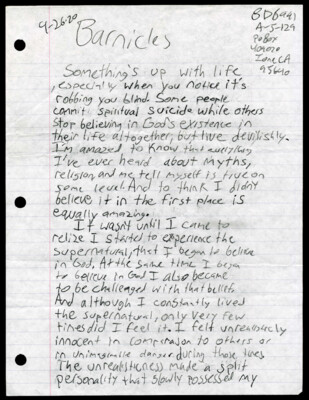 9-26-20
BD6941
A-5-129
PO Box
409020
Ione CA
95640
Barnicles
Something's up with life
, especially when you notice it's
robbing you blind. Some people
commit spiritual suicide while others
stop believing in God's existence in
their life altogether, but live devilishly.
I'm amazed to know that everything
I've ever heard about myths,
religion, and me, tell myself is true on
some level. And to think I didn't
believe it in the first place is
equally amazing.
It wasn't until I came to
relize I started to experience the
supernatural, that I began to believe
in God. At the same time I began
to believe in God I also became
to be challenged with that beliefs
And although I constantly lived
the supernatural, only very few
times did I feel it. I felt unrealisticly
innocent in comparison to others or
in unimaginable danger during those times
The unrealisticness made a split
personality that slowly possessed my